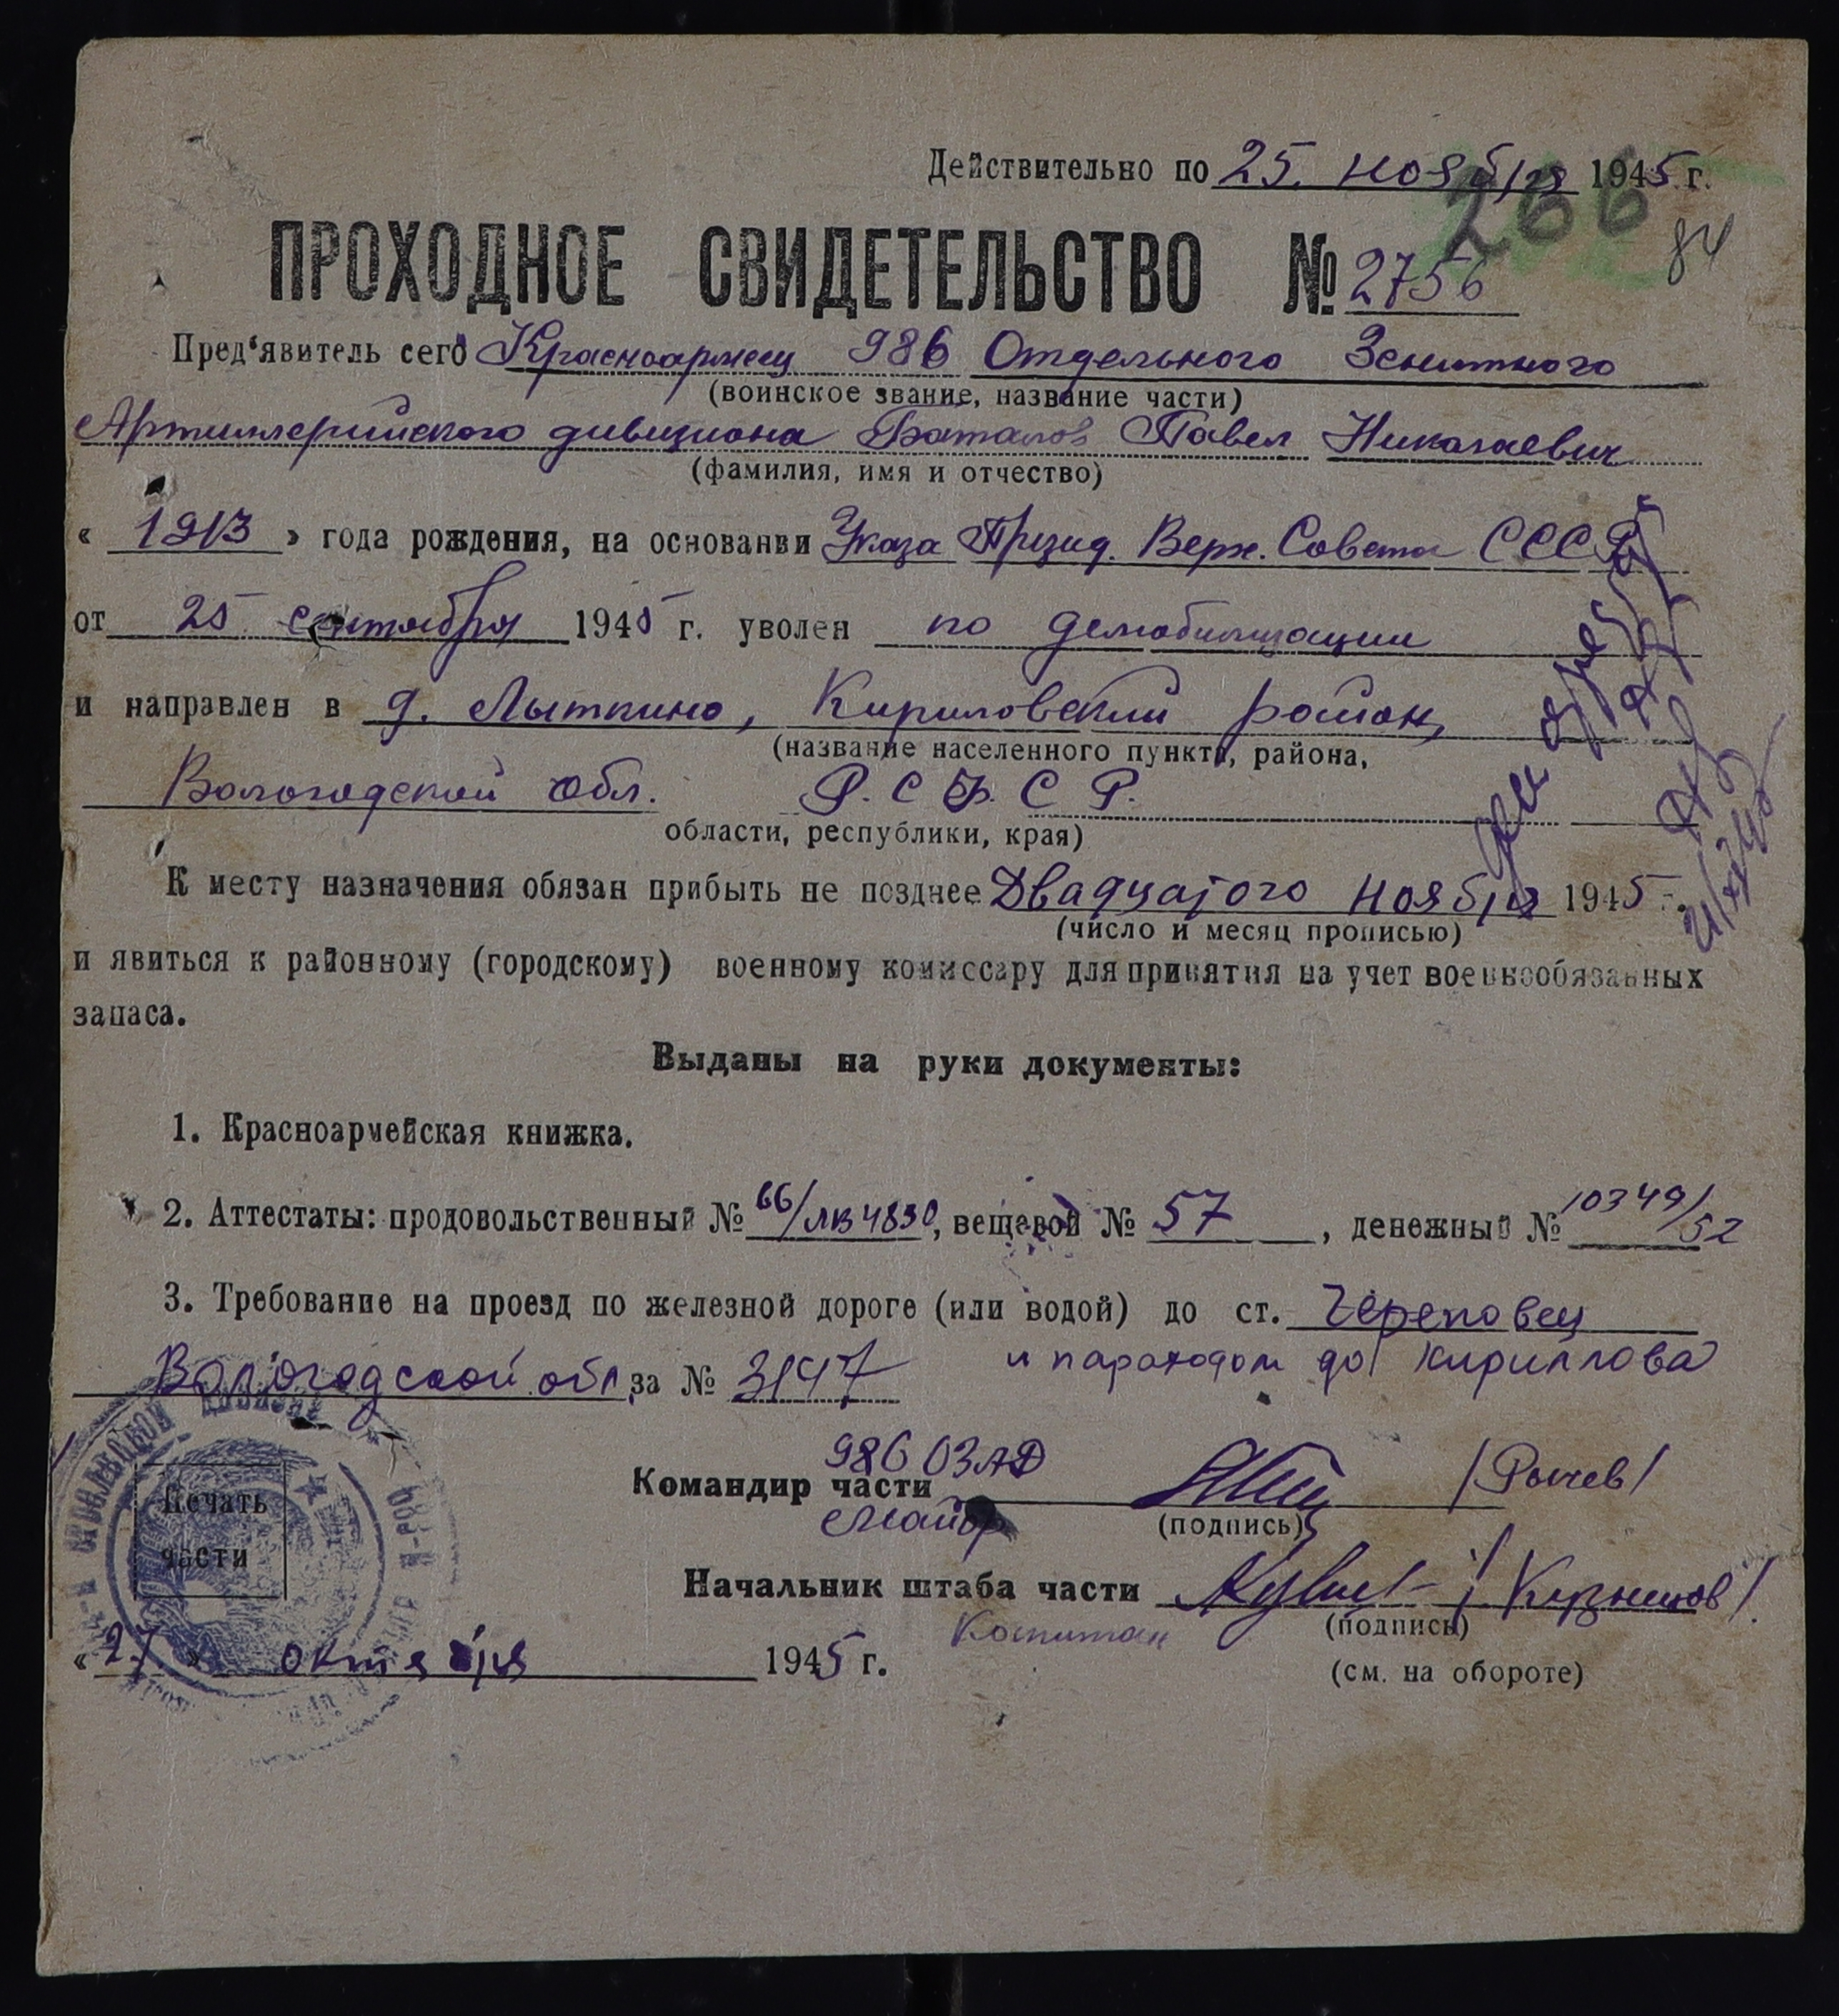 Действительно по 25. ноября 1945 г.
266
84
ПРОХОДНОЕ СВИДЕТЕЛЬСТВО № 2756
Пред'явитель сего Красноармеец 986 Отдельного Зенитного
(воинское звание, название части)
Артиллерийского дивизиона Баталов Павел Николаевич
(фамилия, имя и отчество)
« 1913 » года рождения, на основании Указа Презид. Верх. Совета СССР
от 25 сентября 1945 г. уволен по демобилизации
и направлен в д. Лыткино, Кириловский район,
(название населенного пункта, района,
Вологодской обл. Р.С.Ф.С.Р.
области, республики, края)
К месту назначения обязан прибыть не позднее Двадцатого ноября 1945 г.
(число и месяц прописью)
и явиться к районному (городскому) военному комиссару для принятия на учет военнообязанных
запаса.
Выданы на руки документы:
1. Красноармейская книжка.
2. Аттестаты: продовольственный № 66/ЛВ4830, вещевой № 57, денежный № 10349/52
3. Требование на проезд по железной дороге (или водой) до ст. Череповец
Вологодской обл. за № 3147 и пароходом до Кириллова
986 ОЗАД
Командир части /Рычев/
Майор (подпись)
Печать
части
Начальник штаба части /Кузнецов/
Капитан (подпись)
« 27 » октября 1945 г.
(см. на обороте)